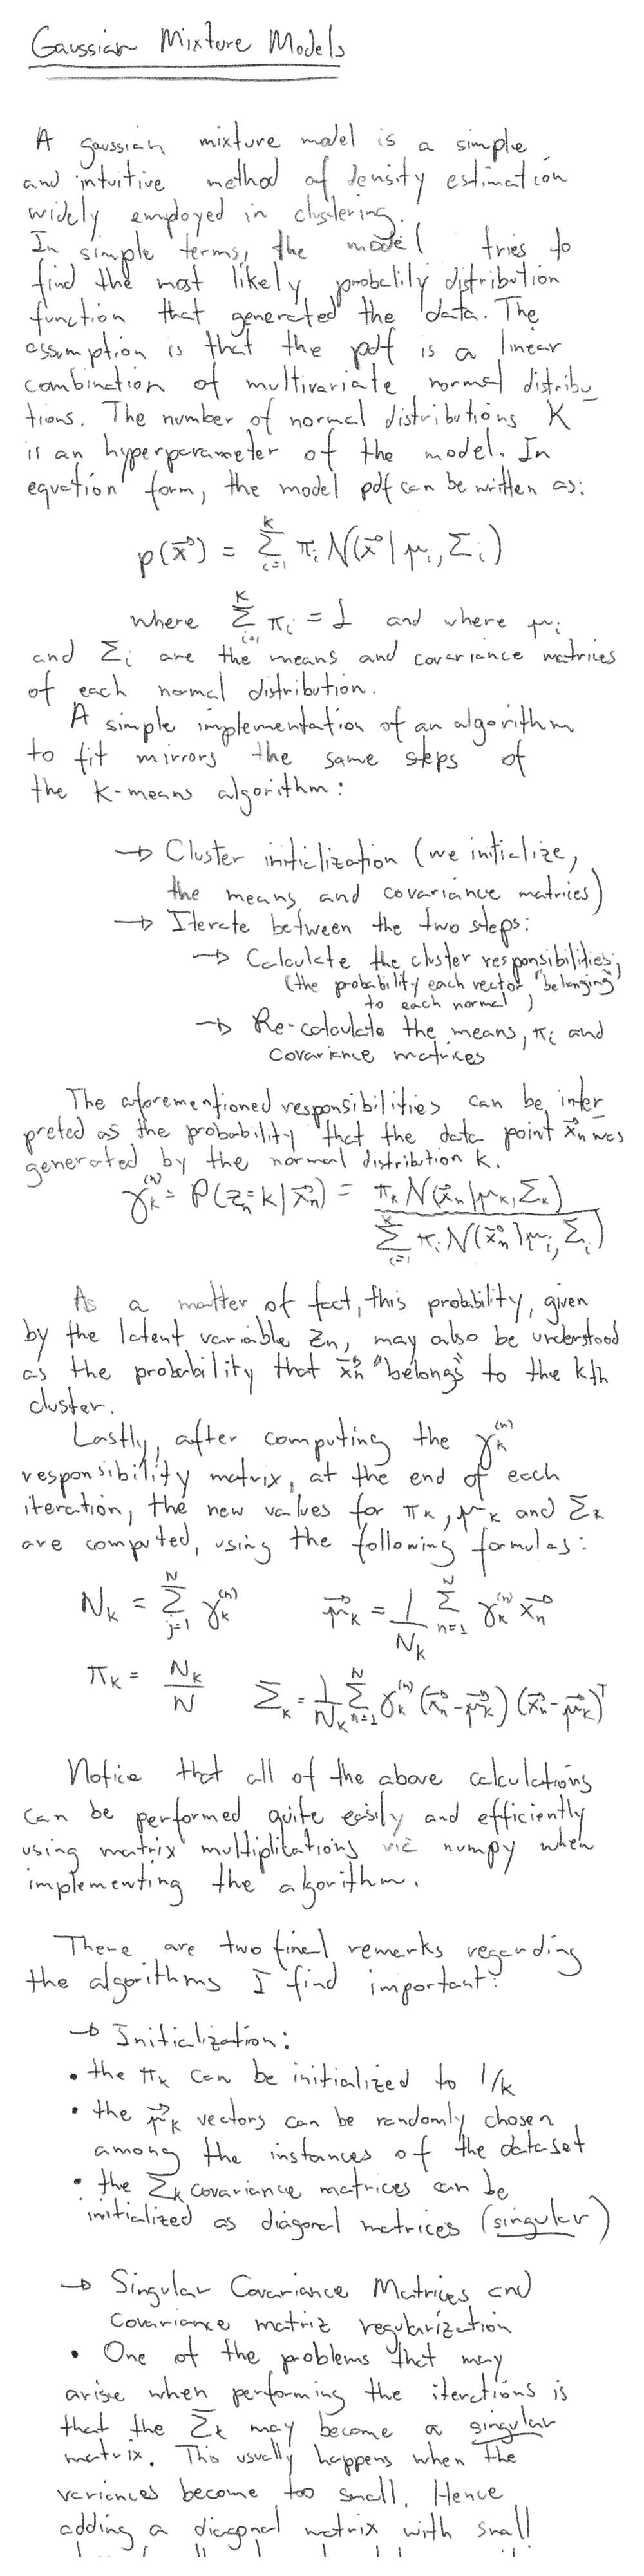 Gaussian Mixture Models
A gaussian mixture model is a simple
and intuitive method of density estimation
widely employed in clustering.
In simple terms, the model tries to
find the most likely probability distribution
function that generated the data. The
assumption is that the pdf is a linear
combination of multivariate normal distribu
tions. The number of normal distributions K
is an hyperparameter of the model. In
equation form, the model pdf can be written as:
p(x⃗) = Σ_{i=1}^{K} π_i N(x⃗ | μ_i, Σ_i)
where Σ_{i=1}^{K} π_i = 1 and where μ_i
and Σ_i are the means and covariance matrices
of each normal distribution.
A simple implementation of an algorithm
to fit mirrors the same steps of
the K-means algorithm:
→ Cluster initialization (we initialize,
the means, and covariance matrices)
→ Iterate between the two steps:
→ Calculate the cluster responsibilities;
(the probability each vector "belonging"
to each normal)
→ Re-calculate the means, π_i and
covariance matrices
The aforementioned responsibilities can be inter
preted as the probability that the data point x⃗_n was
generated by the normal distribution k.
γ_k^(n) = P(z_n=k|x⃗_n) = π_k N(x⃗_n|μ_k, Σ_k) / Σ_{i=1}^{K} π_i N(x⃗_n|μ_i, Σ_i)
As a matter of fact, this probability, given
by the latent variable z_n, may also be understood
as the probability that x⃗_n "belongs" to the kth
cluster.
Lastly, after computing the γ_k^(n)
responsibility matrix, at the end of each
iteration, the new values for π_k, μ_k and Σ_k
are computed, using the following formulas:
N_k = Σ_{j=1}^{N} γ_k^(n) μ⃗_k = 1/N_k Σ_{n=1}^{N} γ_k^(n) x⃗_n
π_k = N_k/N Σ_k = 1/N_k Σ_{n=1}^{N} γ_k^(n) (x⃗_n - μ⃗_k) (x⃗_n - μ⃗_k)^T
Notice that all of the above calculations
can be performed quite easily and efficiently
using matrix multiplications via numpy when
implementing the algorithm.
There are two final remarks regarding
the algorithms I find important:
→ Initialization:
• the π_k can be initialized to 1/k
• the μ⃗_k vectors can be randomly chosen
among the instances of the dataset
• the Σ_k covariance matrices can be
initialized as diagonal matrices (singular)
→ Singular Covariance Matrices, and
covariance matrix regularization
• One of the problems that may
arise when performing the iterations is
that the Σ_k may become a singular
matrix. This usually happens when the
variances become too small. Hence
adding a diagonal matrix with small